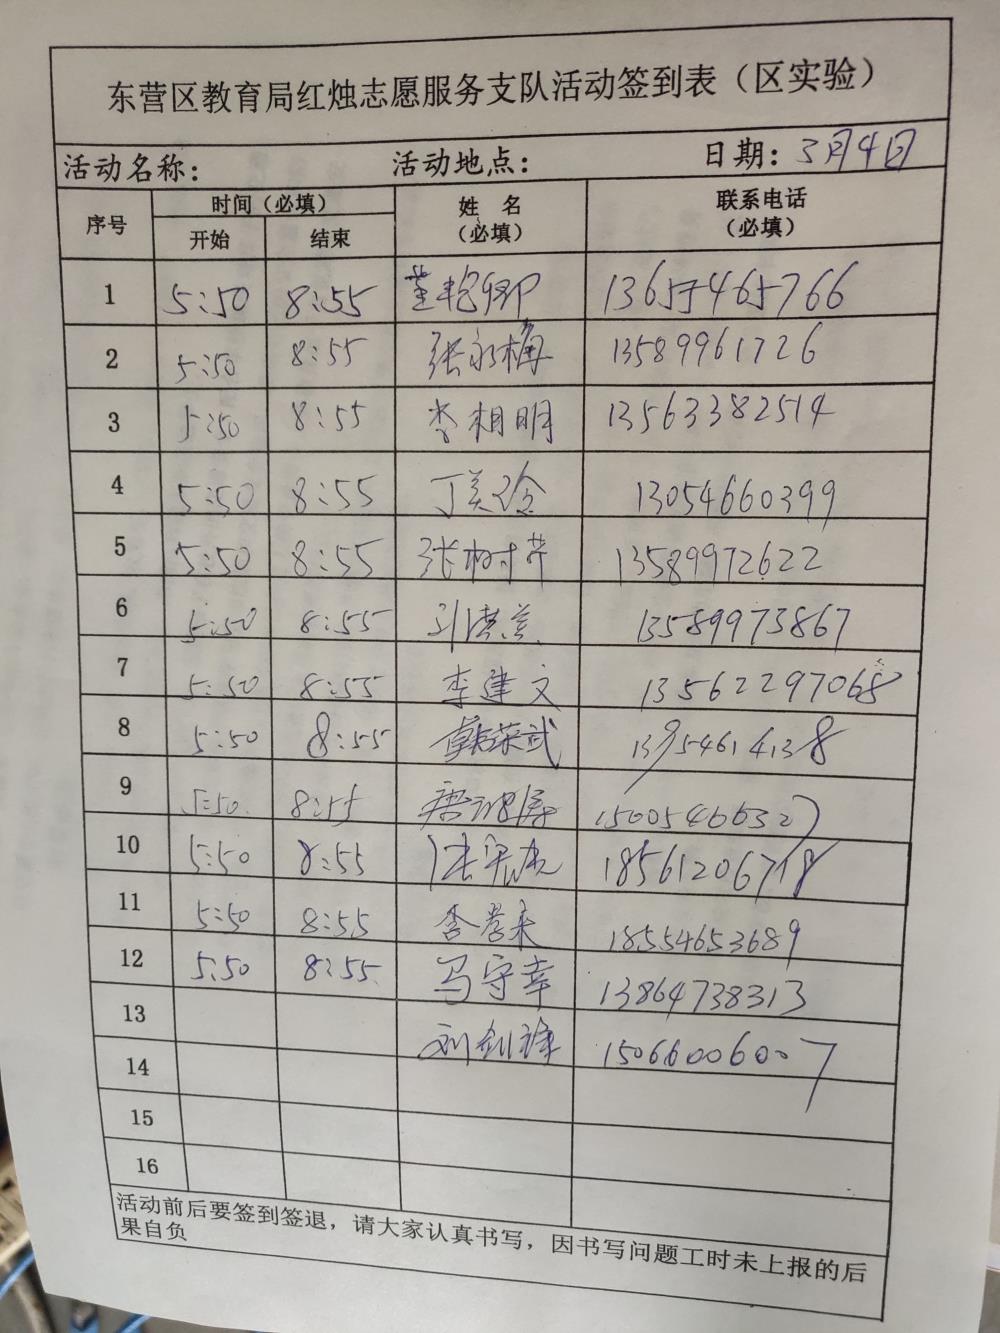 东营区教育局红烛志愿服务支队活动签到表（区实验）
活动名称： 活动地点： 日期：3月4日
序号 时间（必填） 姓 名（必填） 联系电话（必填）
开始 结束
1 5:50 8:55 董艳卿 13655465766
2 5:50 8:55 张永梅 13589961726
3 5:50 8:55 李相明 13563382514
4 5:50 8:55 丁美玲 13054660399
5 5:50 8:55 张树芹 13589972622
6 5:50 8:55 13589973867
7 5:50 8:55 李建文 13562297068
8 5:50 8:55 韩荣武 13954614138
9 5:50 8:55 15005466327
10 5:50 8:55 18561206718
11 5:50 8:55 18554653689
12 5:50 8:55 马守幸 13864738313
13 刘剑锋 15066006007
14
15
16
活动前后要签到签退，请大家认真书写，因书写问题工时未上报的后
果自负